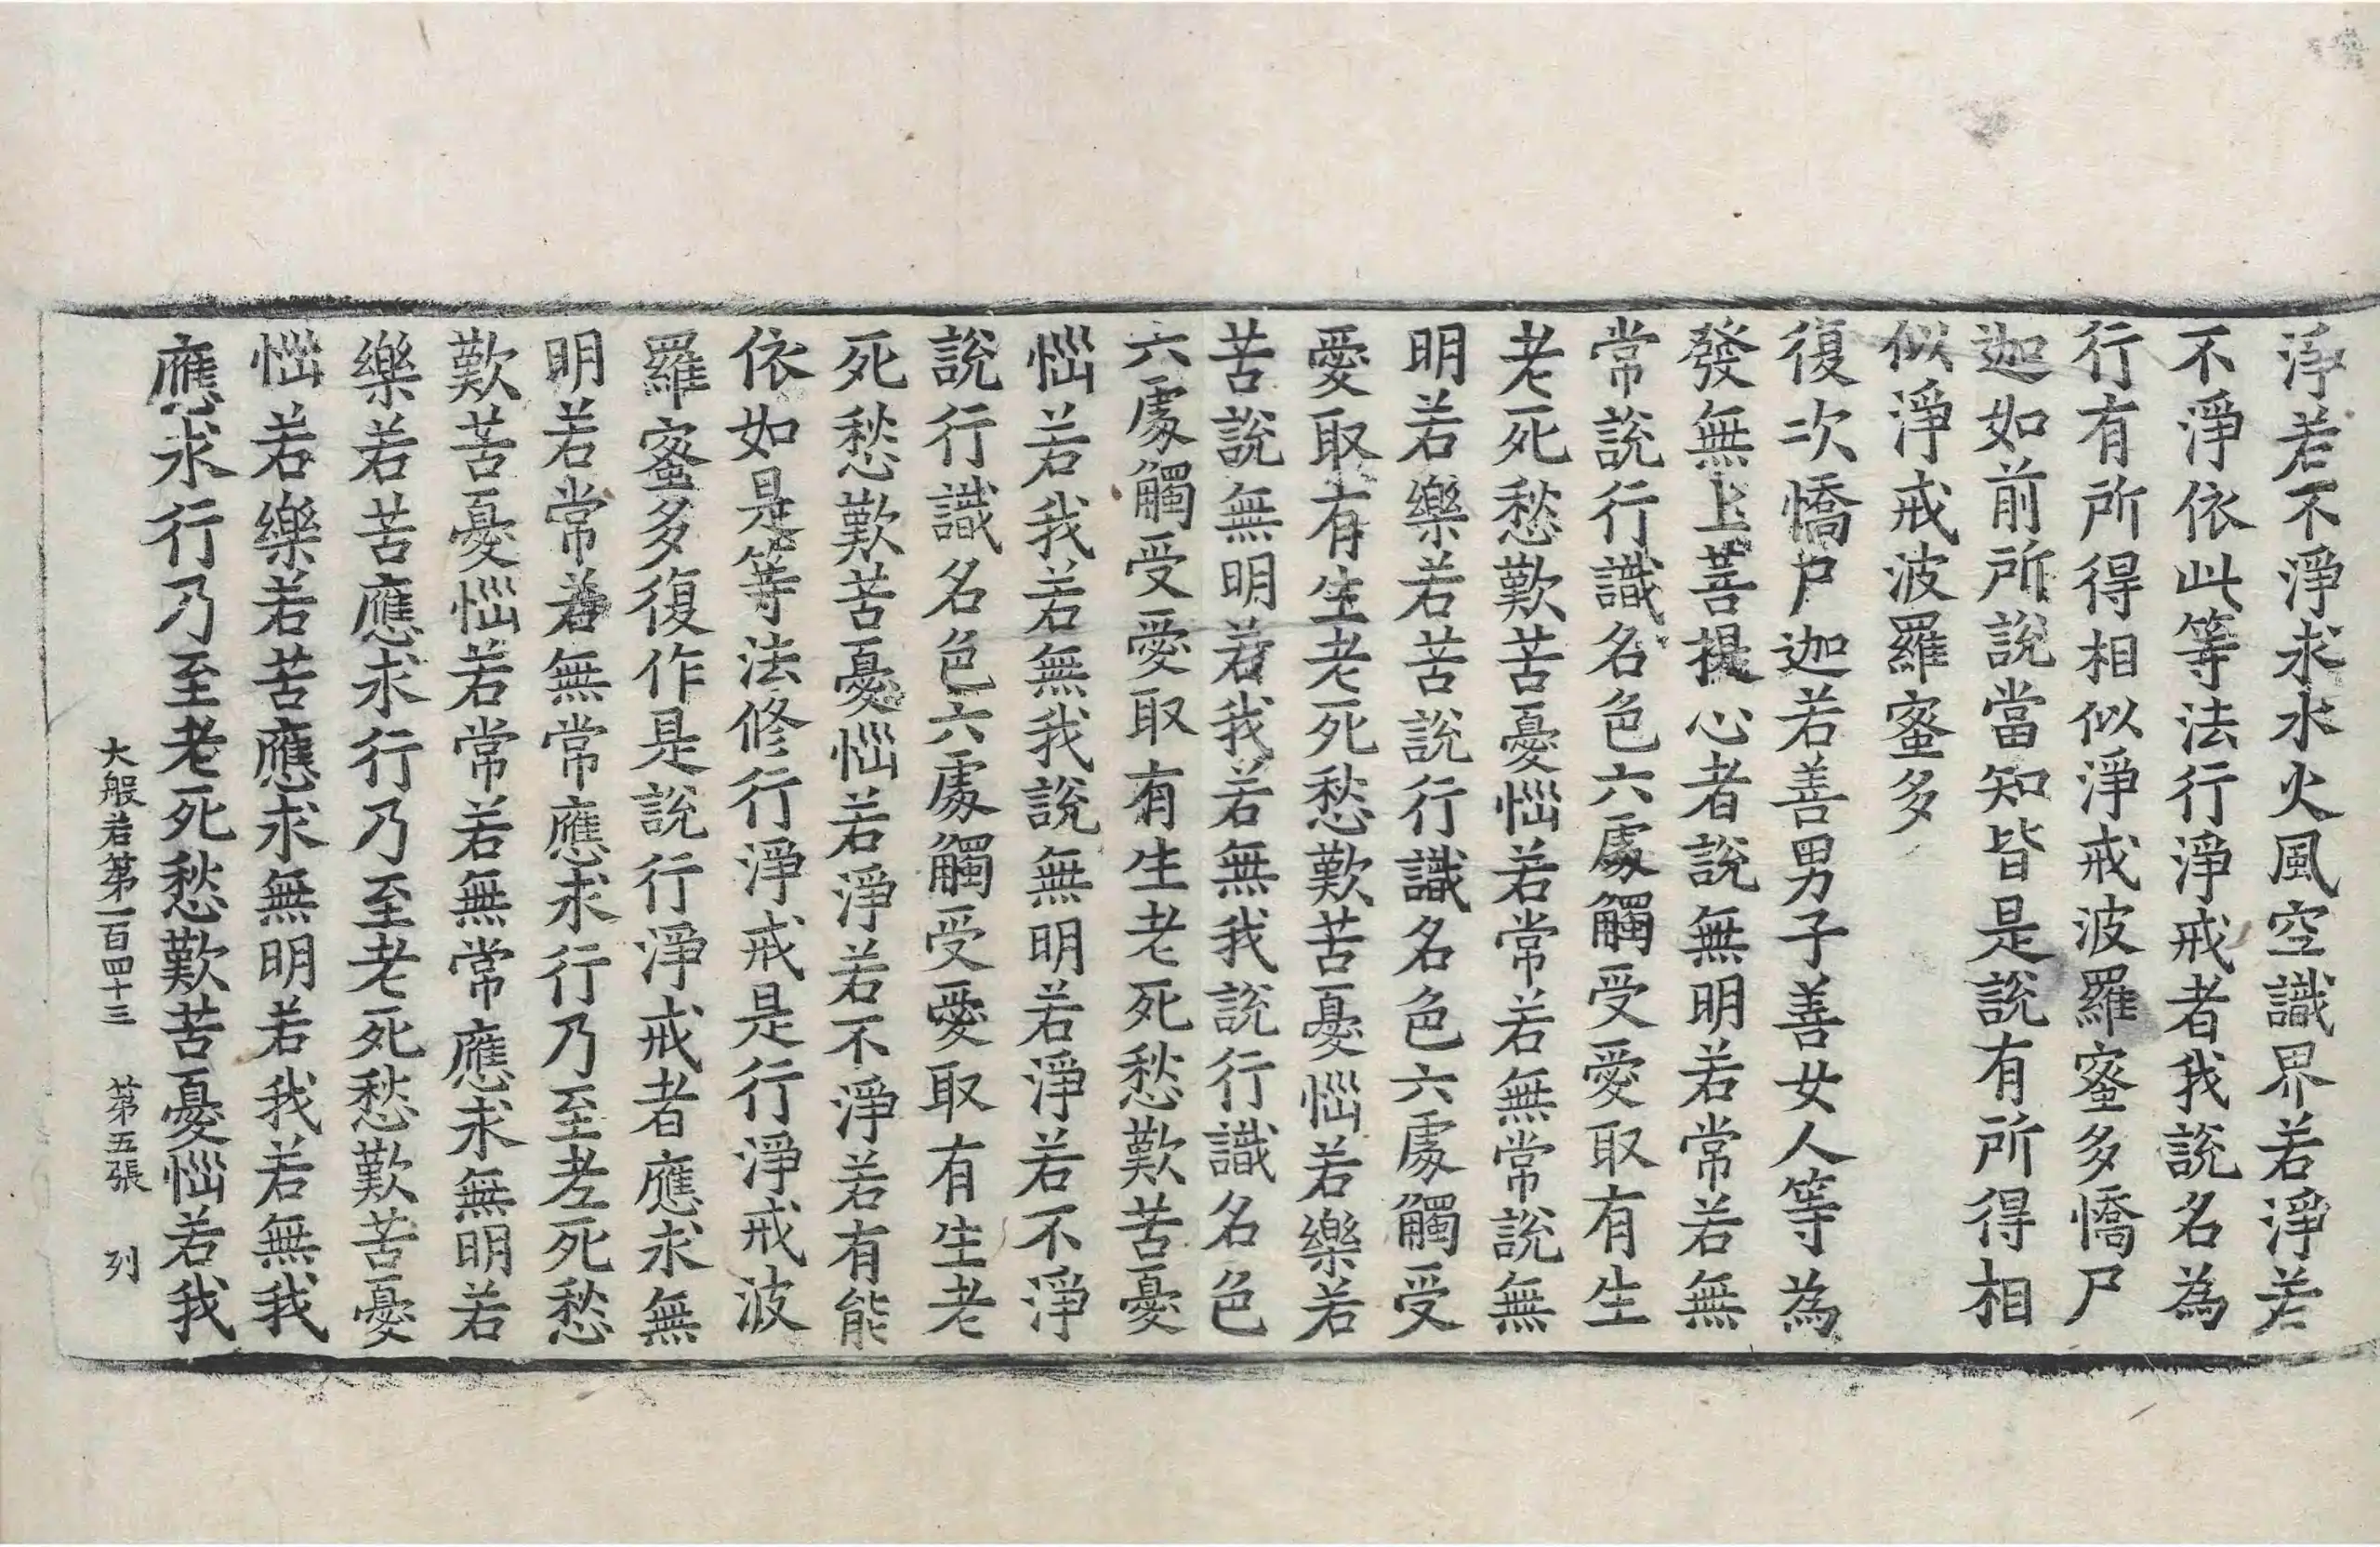 淨若不淨求水火風空識界若淨若
不淨依此等法行淨戒者我說名為
行有所得相似淨戒波羅蜜多憍尸
迦如前所說當知皆是說有所得相
似淨戒波羅蜜多
復次憍尸迦若善男子善女人等為
發無上菩提心者說無明若常若無
常說行識名色六處觸受愛取有生
老死愁歎苦憂惱若常若無常說無
明若樂若苦說行識名色六處觸受
愛取有生老死愁歎苦憂惱若樂若
苦說無明若我若無我說行識名色
六處觸受愛取有生老死愁歎苦憂
惱若我若無我說無明若淨若不淨
說行識名色六處觸受愛取有生老
死愁歎苦憂惱若淨若不淨若有能
依如是等法修行淨戒是行淨戒波
羅蜜多復作是說行淨戒者應求無
明若常若無常應求行乃至老死愁
歎苦憂惱若常若無常應求無明若
樂若苦應求行乃至老死愁歎苦憂
惱若樂若苦應求無明若我若無我
應求行乃至老死愁歎苦憂惱若我
大般若第一百四十三 第五張 列